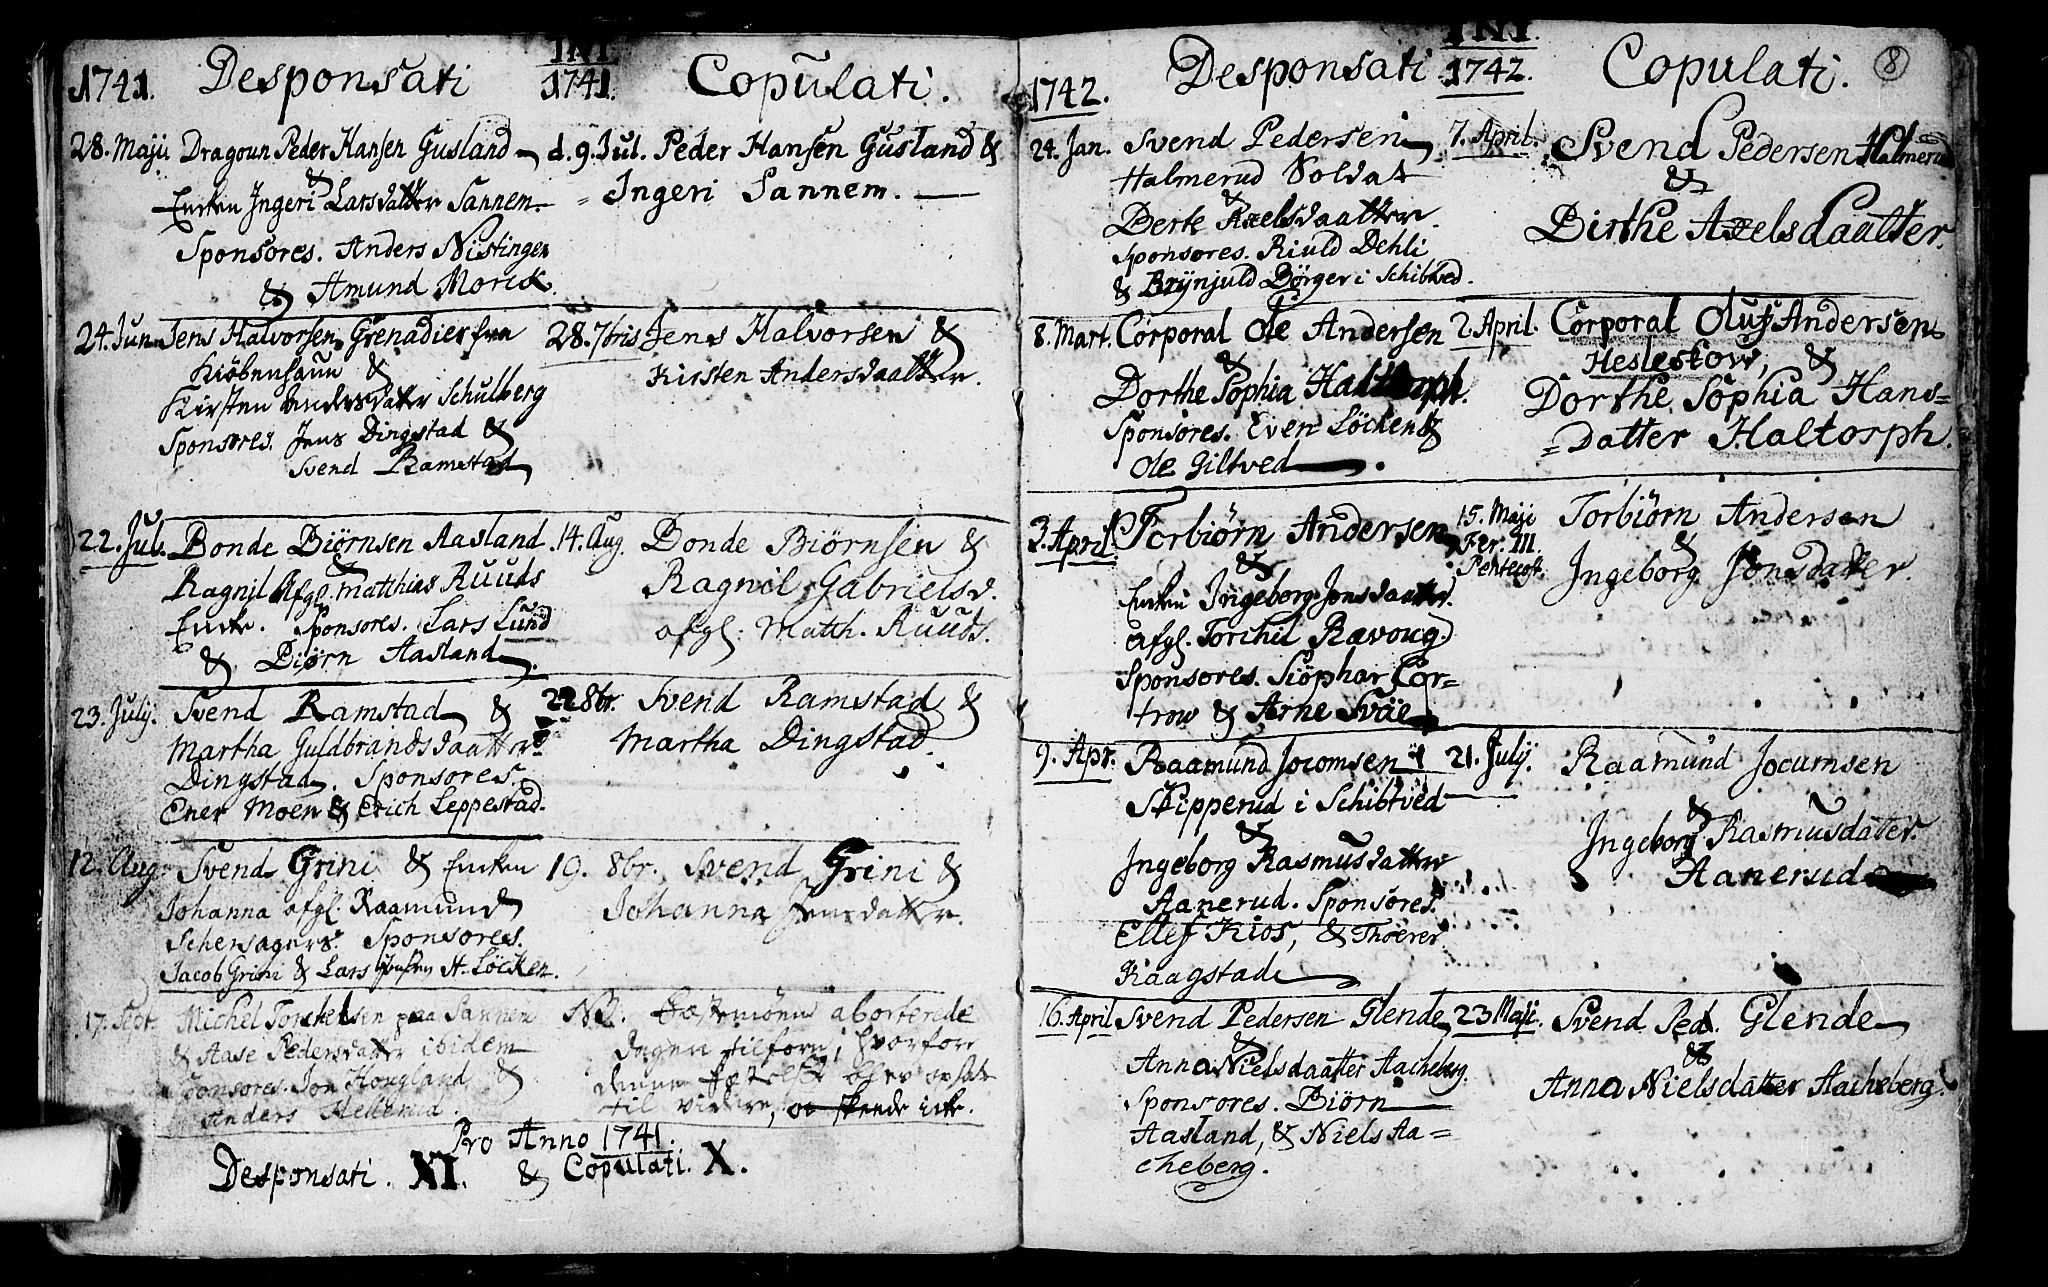 INI
1741. Desponsati
28. Maji Dragoun Peder Hansen Gusland
&
Encken Ingeri Larsdatter Sannem.
Sponsores. Anders Nistingen
& Amund Morck.
24. Jun. Jens Halvorsen Grenadier fra
Kiöbenhaun &
Kirsten Andersdatter Schulberg
Sponsores. Jens Dingstad &
Svend Ramstad
22. Jul. Bonde Biörnsen Aasland
&
Ragnil Afgl. Matthias Ruuds
Encke. Sponsores. Lars Lund
& Biörn Aasland.
23. Julij. Svend Ramstad &
Martha Guldbrandsdaatter
Dingstad. Sponsores.
Ener Moen & Erich Leppestad.
12. Aug. Svend Grini & Encken
Johanna afgl. Raamund
Schersagers. Sponsores.
Jacob Grini & Lars H. Löcken.
17. Sept. Michel Torchelsen paa Sannem
& Aase Pedersdatter ibidem
Sponsores. Jon Hougland &
Anders Hellerud.
1741. Copulati.
d. 9. Jul. Peder Hansen Gusland &
Ingeri Sannem.
28. 7bris Jens Halvorsen &
Kirsten Andersdaatter.
14. Aug. Bonde Biörnsen &
Ragnil Gabrielsd.
afgl. Matth. Ruuds.
22 8br. Svend Ramstad &
Martha Dingstad.
19. 8br. Svend Grini &
Johanna Jensdatter.
NB. Fæstemöen aborterede
dagen tilforn, hvorfore
denne blev opsat
til videre, og skeede icke.
Pro Anno 1741.
Desponsati. XI. & Copulati. X.
INI.
8
1742. Desponsati
24. Jan. Svend Pedersen
Halmerud Soldat
&
Berte Axelsdaatter.
Sponsores. Riuld Dehli
& Brynjuld Börger i Schibtved.
8. Mart. Corporal Ole Andersen
&
Dorthe Sophia Haltorph.
Sponsores. Even Löcken &
Ole Giltved.
3. April Torbiörn Andersen
&
Encken Ingeborg Jonsdaatter.
afgl. Torchil Ravoug.
Sponsores. Siöphar Cor=
trow & Arne Sväe
9. Apr. Raamund Jocomsen
Skipperud i Schibtved
&
Ingeborg Rasmusdatter
Aanerud. Sponsores.
Ellef Kios, & Thoerer
Kaagstad
16. April Svend Pedersen Glende
&
Anna Nielsdaatter Aacheberg.
Sponsores. Biörn
Aasland, & Niels Aa=
cheberg.
1742. Copulati.
7. April. Svend Pedersen Halmerud
&
Birthe Axelsdaatter.
2. April. Corporal Oluf Andersen
Heslestow, &
Dorthe Sophia Hans=
=datter Haltorph.
15. Maji Torbiörn Andersen
Fer. III. &
Pentecost. Ingeborg Jonsdatter.
21. Julij. Raamund Jocumsen
&
Ingeborg Rasmusdatter
Aanerud
23 Maji. Svend Ped. Glende
&
Anna Nielsdatter Aacheberg.